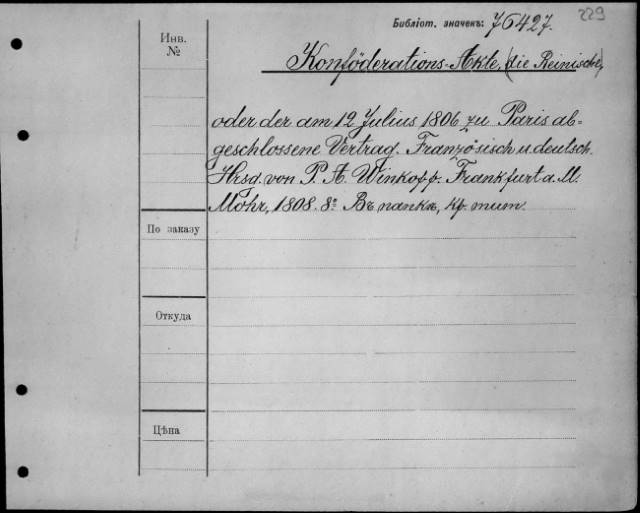 229
Библіот. значекъ: 76427.
Инв.
№
Konföderations-Akte, (die Reinische,)
oder der am 12 Julius 1806 zu Paris ab-
geschlossene Vertrag. Französisch u. deutsch.
Hrsg. von P. A. Winkopp. Frankfurt a. M.
Mohr, 1808. 8º Въ папкѣ, кр. тит.
По заказу
Откуда
Цѣна